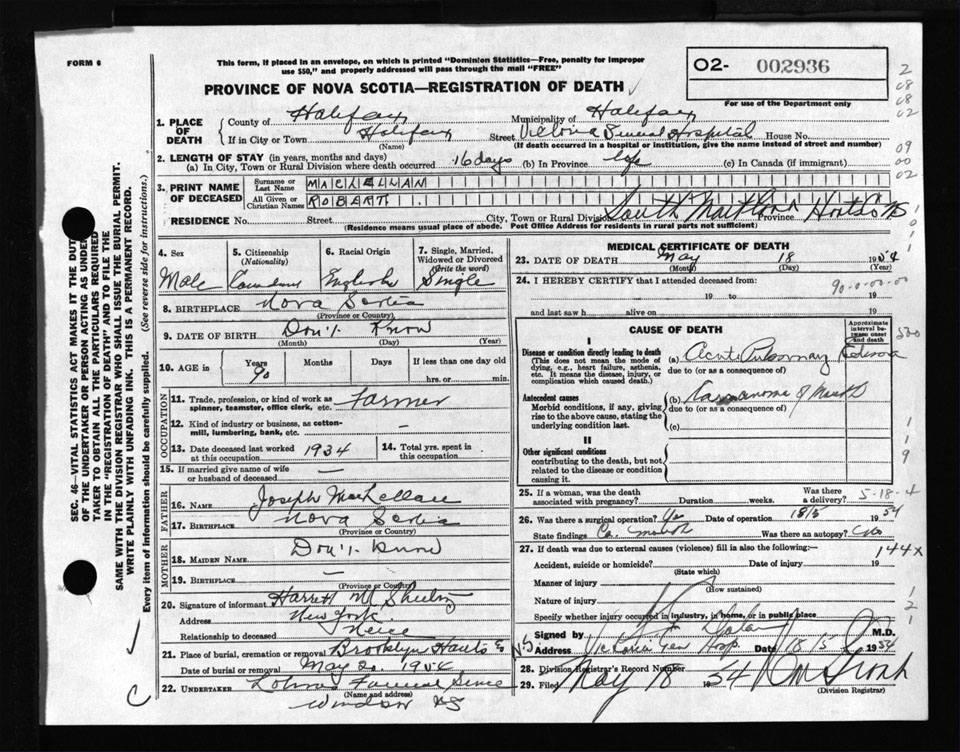 FORM 6
This form, if placed in an envelope, on which is printed "Dominion Statistics—Free, penalty for improper
use $50," and properly addressed will pass through the mail "FREE"
O2- 002936
PROVINCE OF NOVA SCOTIA—REGISTRATION OF DEATH
For use of the Department only
1. PLACE OF DEATH
County of Halifax Municipality of Halifax
If in City or Town Halifax Street Victoria General Hospital House No.
(Name) (If death occurred in a hospital or institution, give the name instead of street and number)
2. LENGTH OF STAY (in years, months and days)
(a) In City, Town or Rural Division where death occurred 16 days (b) In Province life (c) In Canada (if immigrant)
3. PRINT NAME OF DECEASED
Surname or Last Name MACLELLAN
All Given or Christian Names ROBERT
RESIDENCE No. Street City, Town or Rural Division South Maitland Province Hants Co NS
(Residence means usual place of abode. Post Office Address for residents in rural parts not sufficient)
4. Sex Male
5. Citizenship (Nationality) Canadian
6. Racial Origin English
7. Single, Married, Widowed or Divorced (Write the word) Single
8. BIRTHPLACE Nova Scotia
(Province or Country)
9. DATE OF BIRTH Don't Know
(Month) (Day) (Year)
10. AGE in Years 90 Months Days If less than one day old
hrs. or min.
OCCUPATION
11. Trade, profession, or kind of work as spinner, teamster, office clerk, etc. Farmer
12. Kind of industry or business, as cotton-mill, lumbering, bank, etc. —
13. Date deceased last worked at this occupation 1934
14. Total yrs. spent in this occupation
15. If married give name of wife or husband of deceased —
FATHER
16. NAME Joseph MacLellan
17. BIRTHPLACE Nova Scotia
(Province or Country)
MOTHER
18. MAIDEN NAME Don't Know
19. BIRTHPLACE —
(Province or Country)
20. Signature of informant Harriet M
Address New York
Relationship to deceased Neice
21. Place of burial, cremation or removal Brooklyn Hants Co
Date of burial or removal May 20, 1954
22. UNDERTAKER Funeral Service
(Name and address)
Windsor NS
MEDICAL CERTIFICATE OF DEATH
23. DATE OF DEATH May 18 1954
(Month) (Day) (Year)
24. I HEREBY CERTIFY that I attended deceased from:
90-0-00-00
19 to 19
and last saw h alive on 19
CAUSE OF DEATH
Approximate interval between onset and death
I
Disease or condition directly leading to death
(This does not mean the mode of dying, e.g., heart failure, asthenia, etc. It means the disease, injury, or complication which caused death.)
(a) Acute Pulmonary Edema
due to (or as a consequence of)
Antecedent causes
Morbid conditions, if any, giving rise to the above cause, stating the underlying condition last.
(b) Carcinoma of Mouth
due to (or as a consequence of)
(c)
II
Other significant conditions
contributing to the death, but not related to the disease or condition causing it.
25. If a woman, was the death associated with pregnancy? Duration weeks. Was there a delivery?
5-18-4
26. Was there a surgical operation? Yes Date of operation 18/5 1954
State findings Ca. mouth Was there an autopsy?
27. If death was due to external causes (violence) fill in also the following:—
144x
Accident, suicide or homicide? Date of injury 19
(State which)
Manner of injury
(How sustained)
Nature of injury
Specify whether injury occurred in industry, in home, or in public place
Signed by M.D.
Address Victoria Gen Hosp. Date 18/5 1954
28. Division Registrar's Record Number
29. Filed May 18 1954
(Division Registrar)
SEC. 46—VITAL STATISTICS ACT MAKES IT THE DUTY
OF THE UNDERTAKER OR PERSON ACTING AS UNDER-
TAKER TO OBTAIN ALL THE PARTICULARS REQUIRED
IN THE "REGISTRATION OF DEATH" AND TO FILE THE
SAME WITH THE DIVISION REGISTRAR WHO SHALL ISSUE THE BURIAL PERMIT.
WRITE PLAINLY WITH UNFADING INK. THIS IS A PERMANENT RECORD.
Every item of information should be carefully supplied. (See reverse side for instructions.)